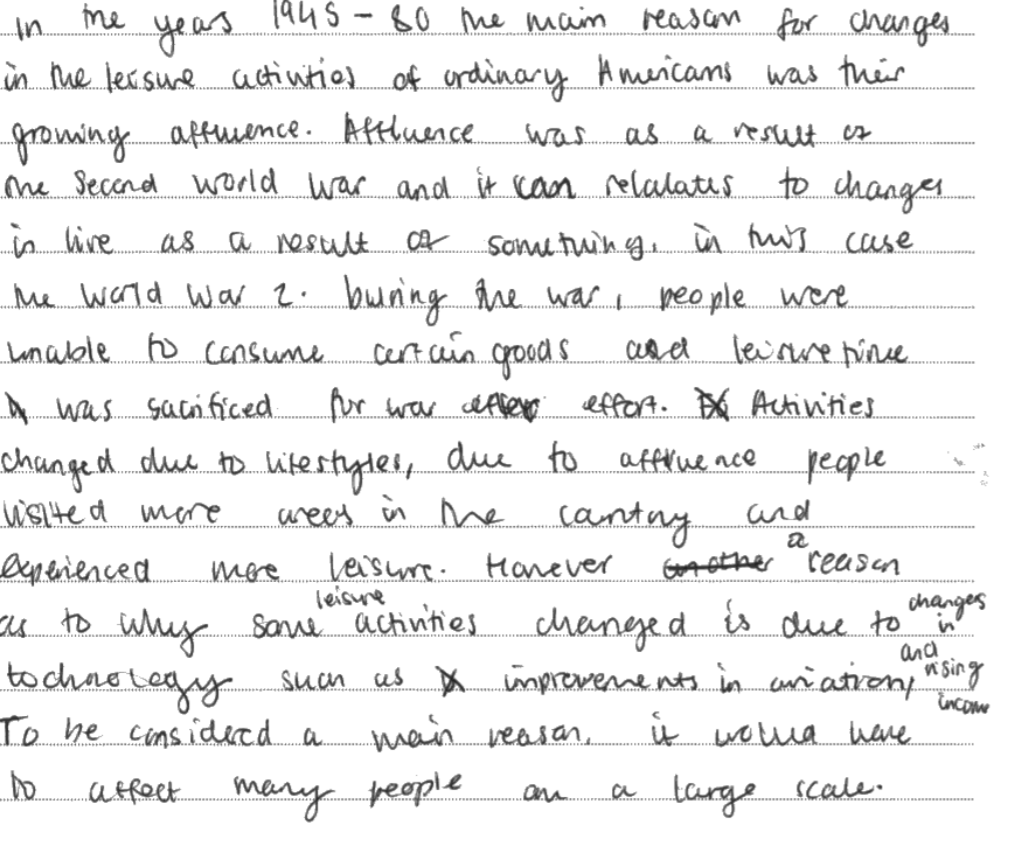 In the years 1945 - 80 the main reason for changes
in the leisure activities of ordinary Americans was their
growing affluence. Affluence was as a result of
the Second World War and it can relalates to changes
in live as a result of something, in this case
the World War 2. During the war, people were
unable to consume certain goods and leisure time
was sacrificed for war effort. Activities
changed due to lifestyles, due to affluence people
visited more areas in the country and
experienced more leisure. However another a reason
as to why some leisure activities changed is due to changes in
technology such as improvements in aviation, and rising income
To be considerd a main reason, it would have
to affect many people on a large scale.